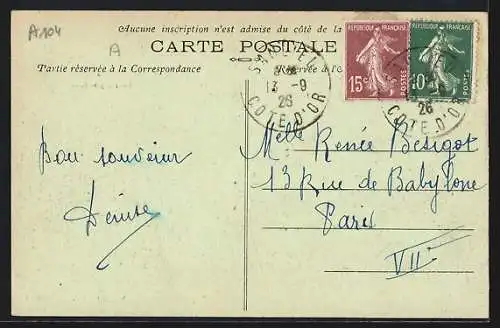 A 104
A
Aucune inscription n'est admise du côté de la
CARTE POSTALE
Partie réservée à la Correspondance
Réservée à l'
13 - 9
26
COTE D'OR
15c
POSTES
10c
26
COTE D'OR
Bon souvenir
Denise
Melle Renée Besigot
13 Rue de Babylone
Paris
VII